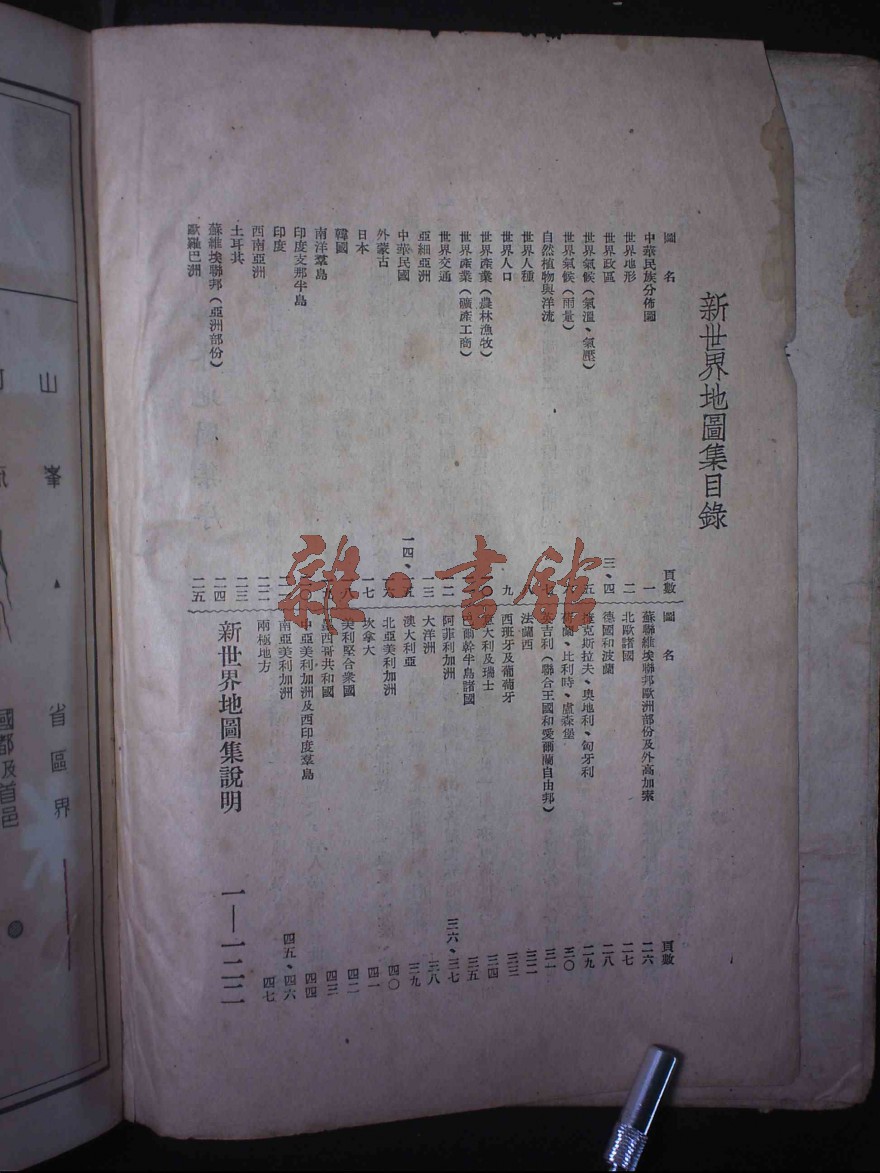 新世界地圖集目錄
圖名 頁數
中華民族分佈圖 一
世界地形 二
世界政區 三、四
世界氣候（氣溫、氣壓） 五
世界氣候（雨量） 六
自然植物與洋流
世界人種 八
世界人口 九
世界產業（農林漁牧） 一〇
世界產業（礦產工商）
世界交通 一二
亞細亞洲 一三
中華民國 一四、一五
外蒙古 一六
日本 一七
韓國 一八
南洋羣島
印度支那半島 二〇
印度 二一
西南亞洲 二二
土耳其 二三
蘇維埃聯邦（亞洲部份） 二四
歐羅巴洲 二五
圖名 頁數
蘇聯維埃聯邦歐洲部份及外高加索 二六
北歐諸國 二七
德國和波蘭 二八
捷克斯拉夫、奧地利、匈牙利 二九
荷蘭、比利時、盧森堡 三〇
英吉利（聯合王國和愛爾蘭自由邦） 三一
法蘭西 三二
西班牙及葡萄牙 三三
意大利及瑞士 三四
巴爾幹半島諸國 三五
阿菲利加洲 三六、三七
大洋洲 三八
澳大利亞 三九
北亞美利加洲 四〇
坎拿大 四一
美利堅合衆國 四二
墨西哥共和國 四三
中亞美利加洲及西印度羣島 四四
南亞美利加洲 四五、四六
兩極地方 四七
新世界地圖集說明 一—一二二
雜·書館
山峯
省區界
國都及首邑